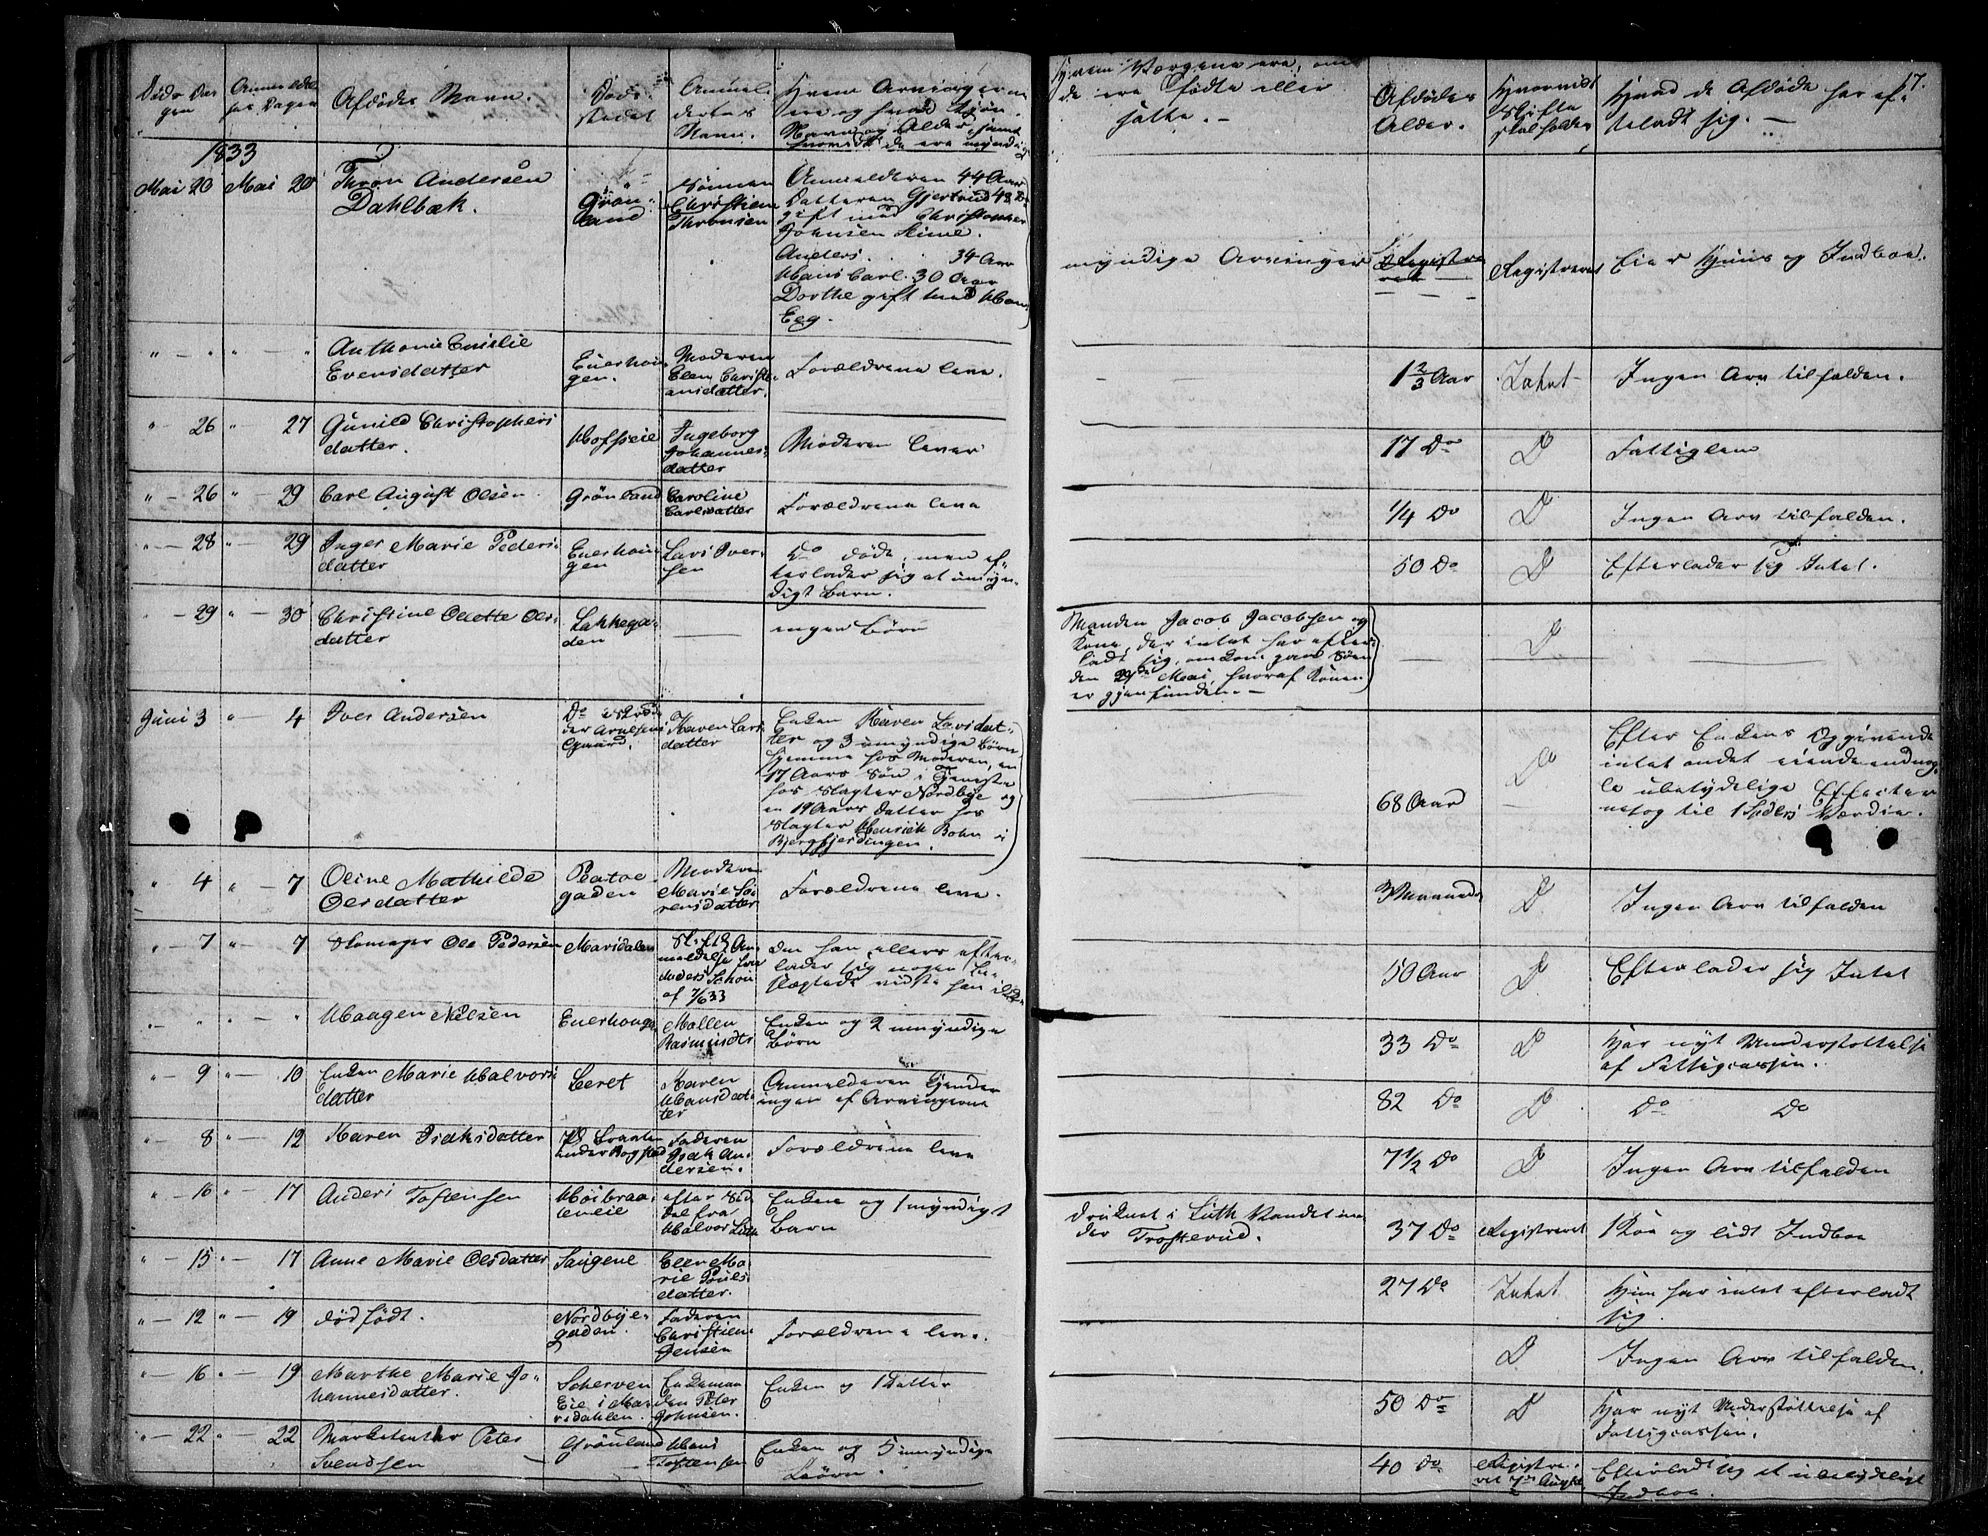 Døds Da=
gen
Anmeldel=
ses Dagen
Afdødes Navn.
Døds
stedet
Anmel=
derens
Navn.
Hvem Arvingerne
ere og hvad deres
Navn og Alder, samt
hvorvidt de ere myndige
Hvem Værgerne ere, om
de ere Ægte eller
Afdødes
Alder.
Hvorvidt
Skifte
skal holdes
Hvad de Afdøde har ef=
terladt sig. —
17.
1833
Mai 20 Mai 20 Thron Andersen
Dahlbæk.
Grøn=
land
Sønnen
Christien
Thronsen
Anmelderen 44 Aar
Datteren Gjertrud 48 Do
gift med Christopher
Johnsen
Anders. 34 Aar
Hans Carl. 30 Aar
Dorthe gift med Hans
Eeg.
myndige Arvinger
Registre
ret
Registreret
Eier Huus og Indboe.
" — " " — " Anthonie Emilie
Evensdatter
Enerhou=
gen.
Moderen
Elen Christi=
ansdatter.
Forældrene leve.
1 2/3 Aar
Intet
Ingen Arv tilfalden.
" 26 " — 27 Gunild Christophers
datter.
Hofseie
Ingeborg
Johannes
datter
Moderen lever
17 Do
D
Fattiglem
" — 26 " — 29 Carl August Olsen.
Grønland
Caroline
Carlsdatter
Forældrene leve
1/4 Do
D
Ingen Arv tilfalden.
" — 28 " — 29 Inger Marie Peders=
datter
Enerhou=
gen
Lars Iver=
sen
Do døde, men ef=
terlader sig et umyn=
digt Barn.
50 Do
D
Efterlader sig Intet.
" — 29 " — 30 Christine Olette Ols=
datter
Lakkega=
den
ingen Børn
Manden Jacob Jacobsen og
Kone, der intet har efter=
ladt sig, omkom paa Søen
den 29de Mai, hvoraf Konen
er gjenfunden. —
D
Juni 3 " — 4 Iver Andersen
Do
Gaard.
Karen Lars
datter
Enken Karen Larsdat=
ter og 3 umyndige Børn
hjemme hos Moderen, en
17 Aars Søn i Tjeneste
hos Slagter Nordbye og
en 19 Aars Datter hos
Slagter Henrik Bohn i
Bjergfjerdingen.
68 Aar
Do
Efter Enkens Opgivende
intet andet eiende end nog=
le ubetydelige Effecter
netop til 1 Værdie.
" 4 " — 7 Oline Mathilde
Olsdatter
gaden
Moderen
Marie Sø=
rensdatter
Forældrene leve.
3 Maaneder
D
Ingen Arv tilfalden
" — 7 " — 7 Ole Pedersen
Maridalen
af 7/6 33
Om han ellers efter=
lader sig nogen Be=
slægtede vidste han ikke
50 Aar
D
Efterlader sig Intet
" — " " — " Haagen Nilsen
Enerhougen
Mallen
Rasmusdtr
Enken og 2 umyndige
Børn
33 Do
D
Har nydt Understøttelse
af Fattigcassen.
" — 9 " — 10 Enken Marie Halvors
datter
Leret
Maren
Hansdat=
ter
Anmelderen kjender
ingen af Arvingerne
82 Do
D
Do Do
" — 8 " — 12 Karen Isaksdatter
under Bogstad
Faderen
Isak An=
dersen.
Forældrene leve
7 1/2 Do
D
Ingen Arv tilfalden
" — 16 " — 17 Anders Tostensen
Høibraa=
teneie
efter Sed=
del fra
Halvor
Enken og 1 myndigt
Barn
druknet i Vandet un=
der Trosterud.
37 Do
Registreret
1 Koe og lidt Indboe
" — 15 " — 17 Anne Marie Olsdatter
Saugene
Ellen Ma=
rie Pouls
datter.
27 Do
Intet
Hun har intet efterladt
sig
" — 12 " — 19 dødfødt.
Nordbye=
gaden
Faderen
Christien
Jensen
Forældrene leve.
D
Ingen Arv tilfalden.
" — 16 " — 19 Marthe Marie Jo=
hannesdatter.
Scherven
Eie i Ma=
ridahlen.
Enkeman
den Peter
Johnsen.
Enken og 1 Datter
50 Do
D
Har nydt Understøttelse af
Fattigcassen.
" — 22 " — 22 Marketenter Peter
Svendsen
Grønland
Hans
Tostensen
Enken og 5 umyndige
Børn.
40 Do
Registre=
ret 7de August
Efterladt sig et ubetydeligt
Indboe.